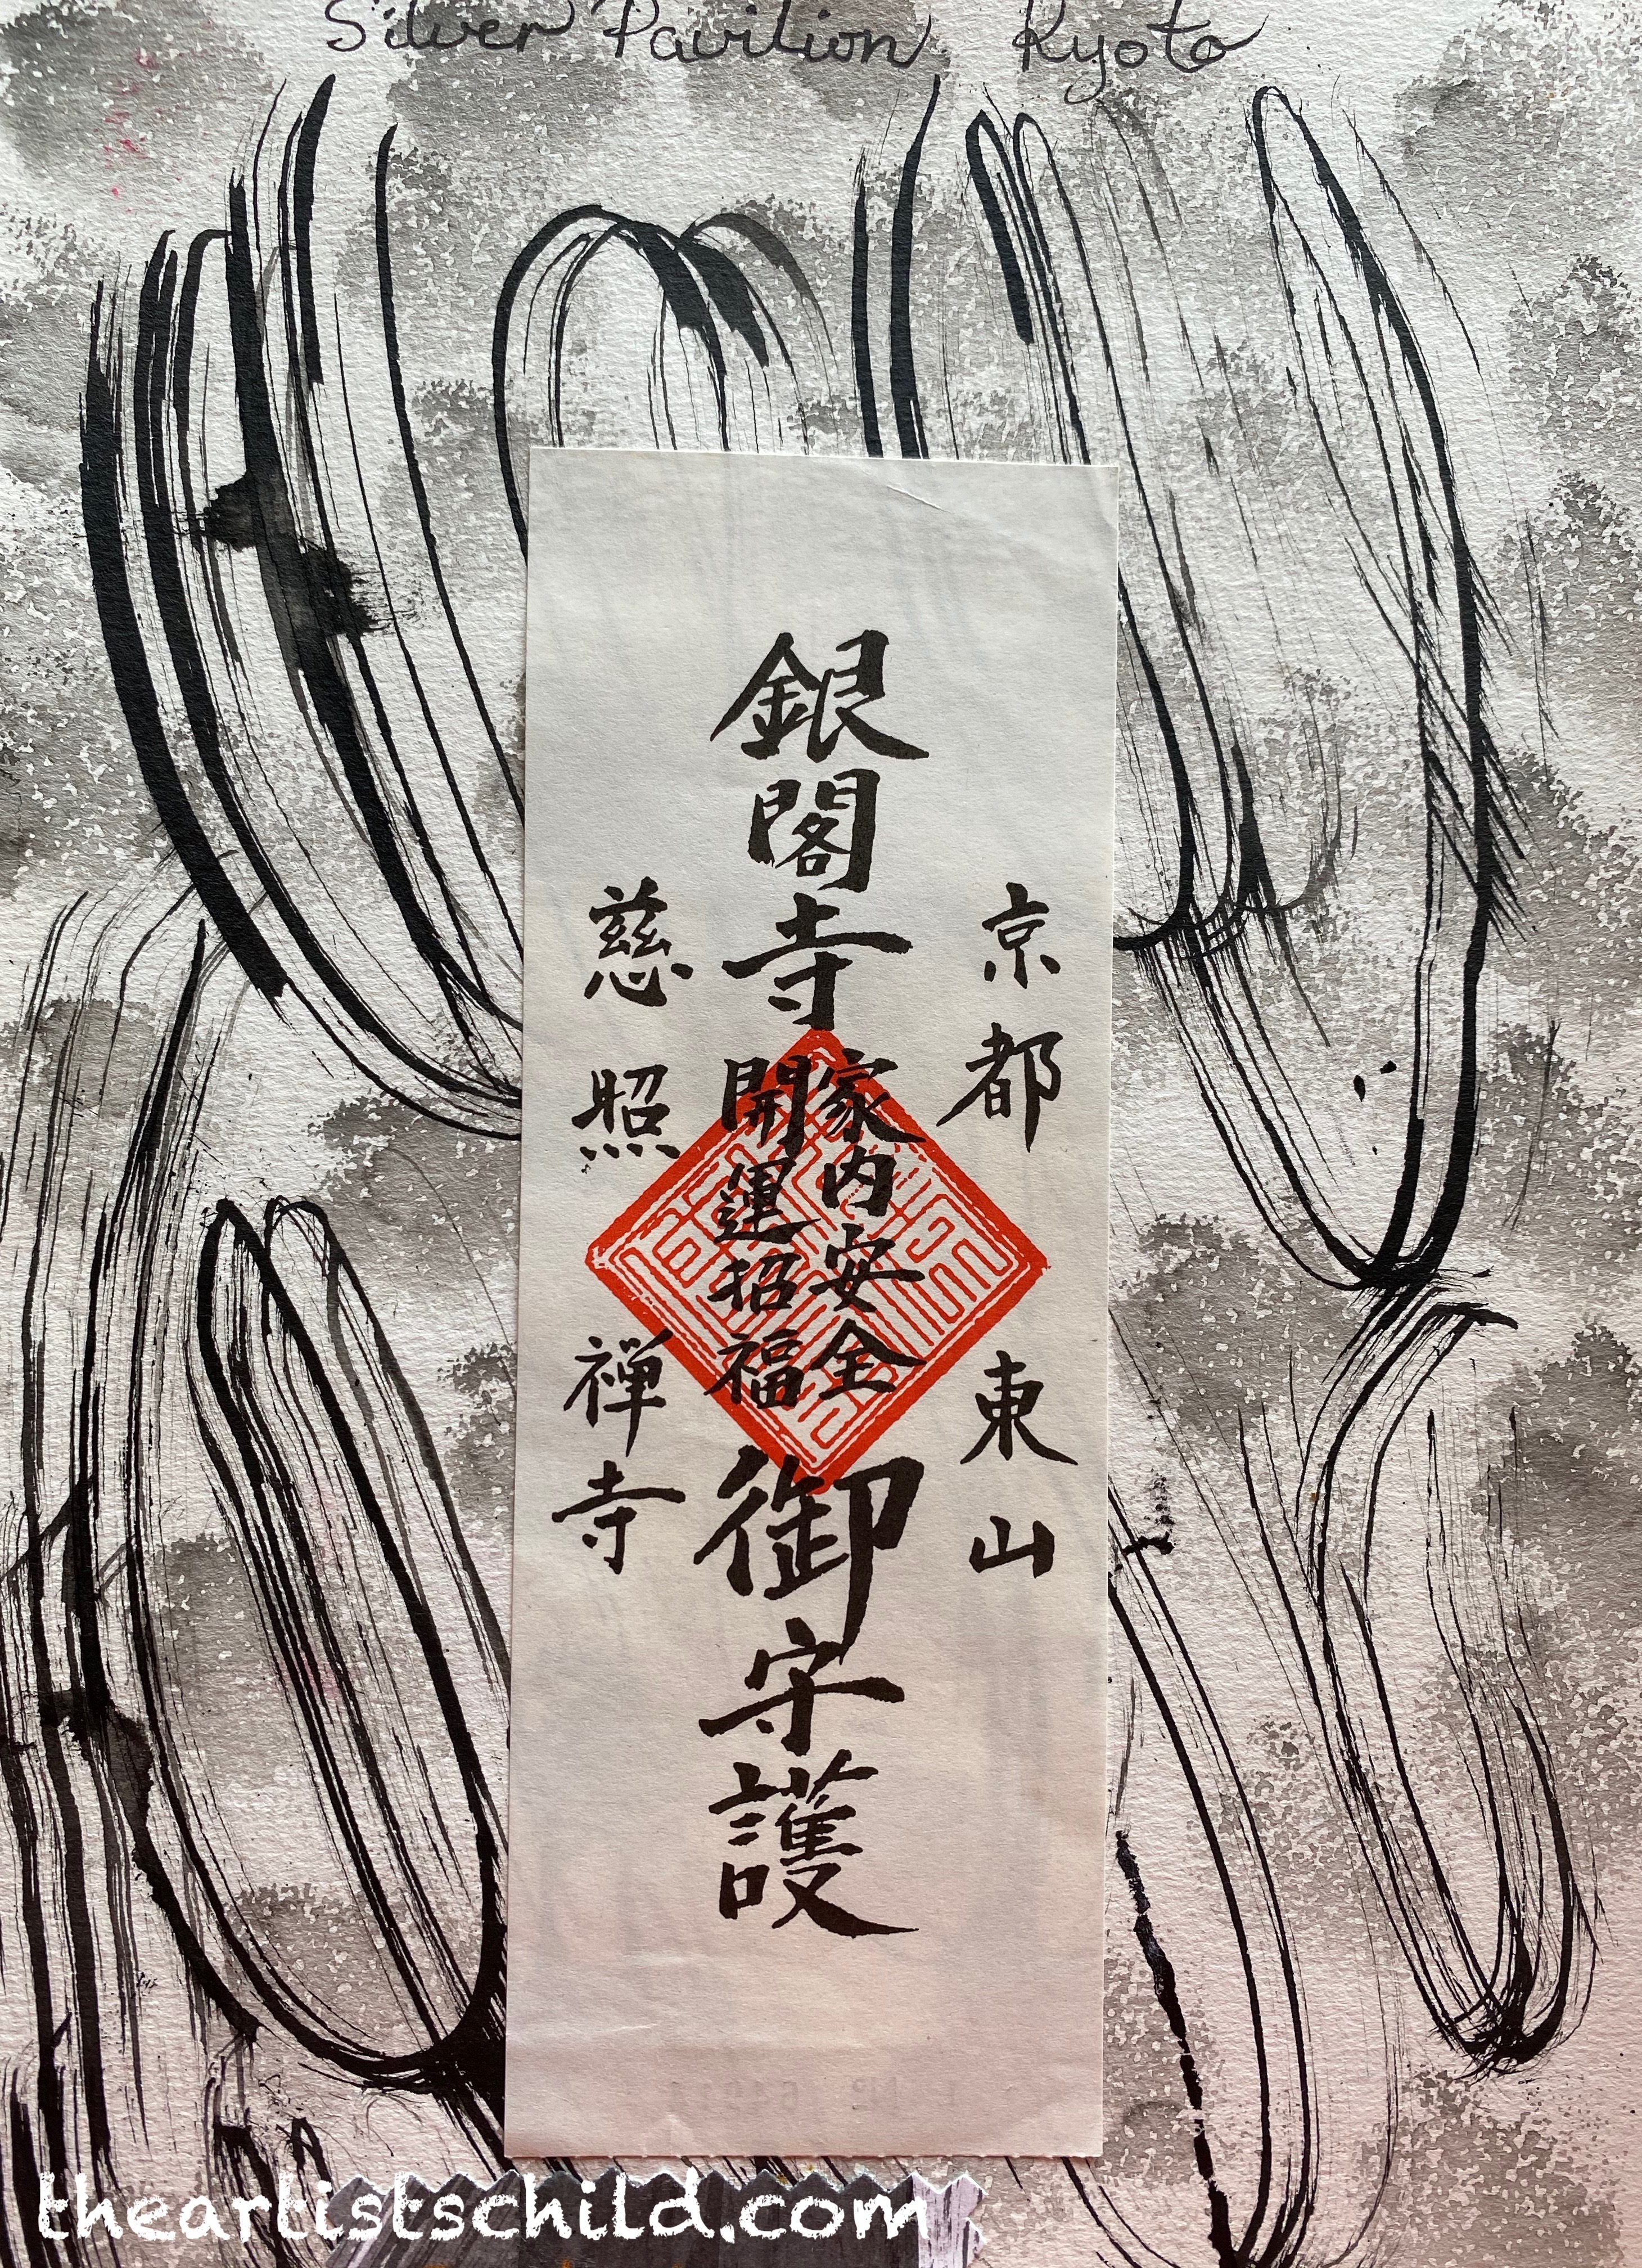 Silver Pavilion, Kyoto
京都 東山
銀閣寺
家内安全
開運招福
御守護
慈照禅寺
theartistschild.com